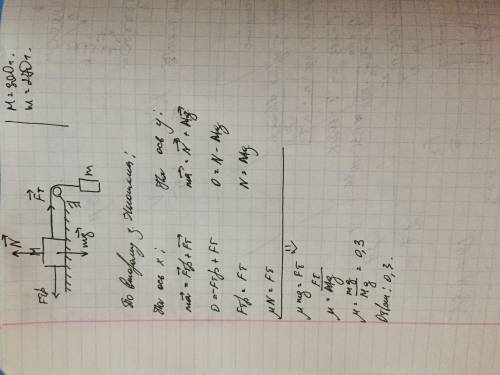 M = 800г.
m = 240г.
N
M
Fтр
Fт
mg
m
По второму з. Ньютона:
На ось x:
ma = Fтр + Fт
0 = -Fтр + Fт
Fтр = Fт
μN = Fт
На ось y:
ma = N + Mg
0 = N - Mg
N = Mg
μmg = Fт
μ = Fт/Mg
μ = mg/Mg = 0,3
Ответ: 0,3.